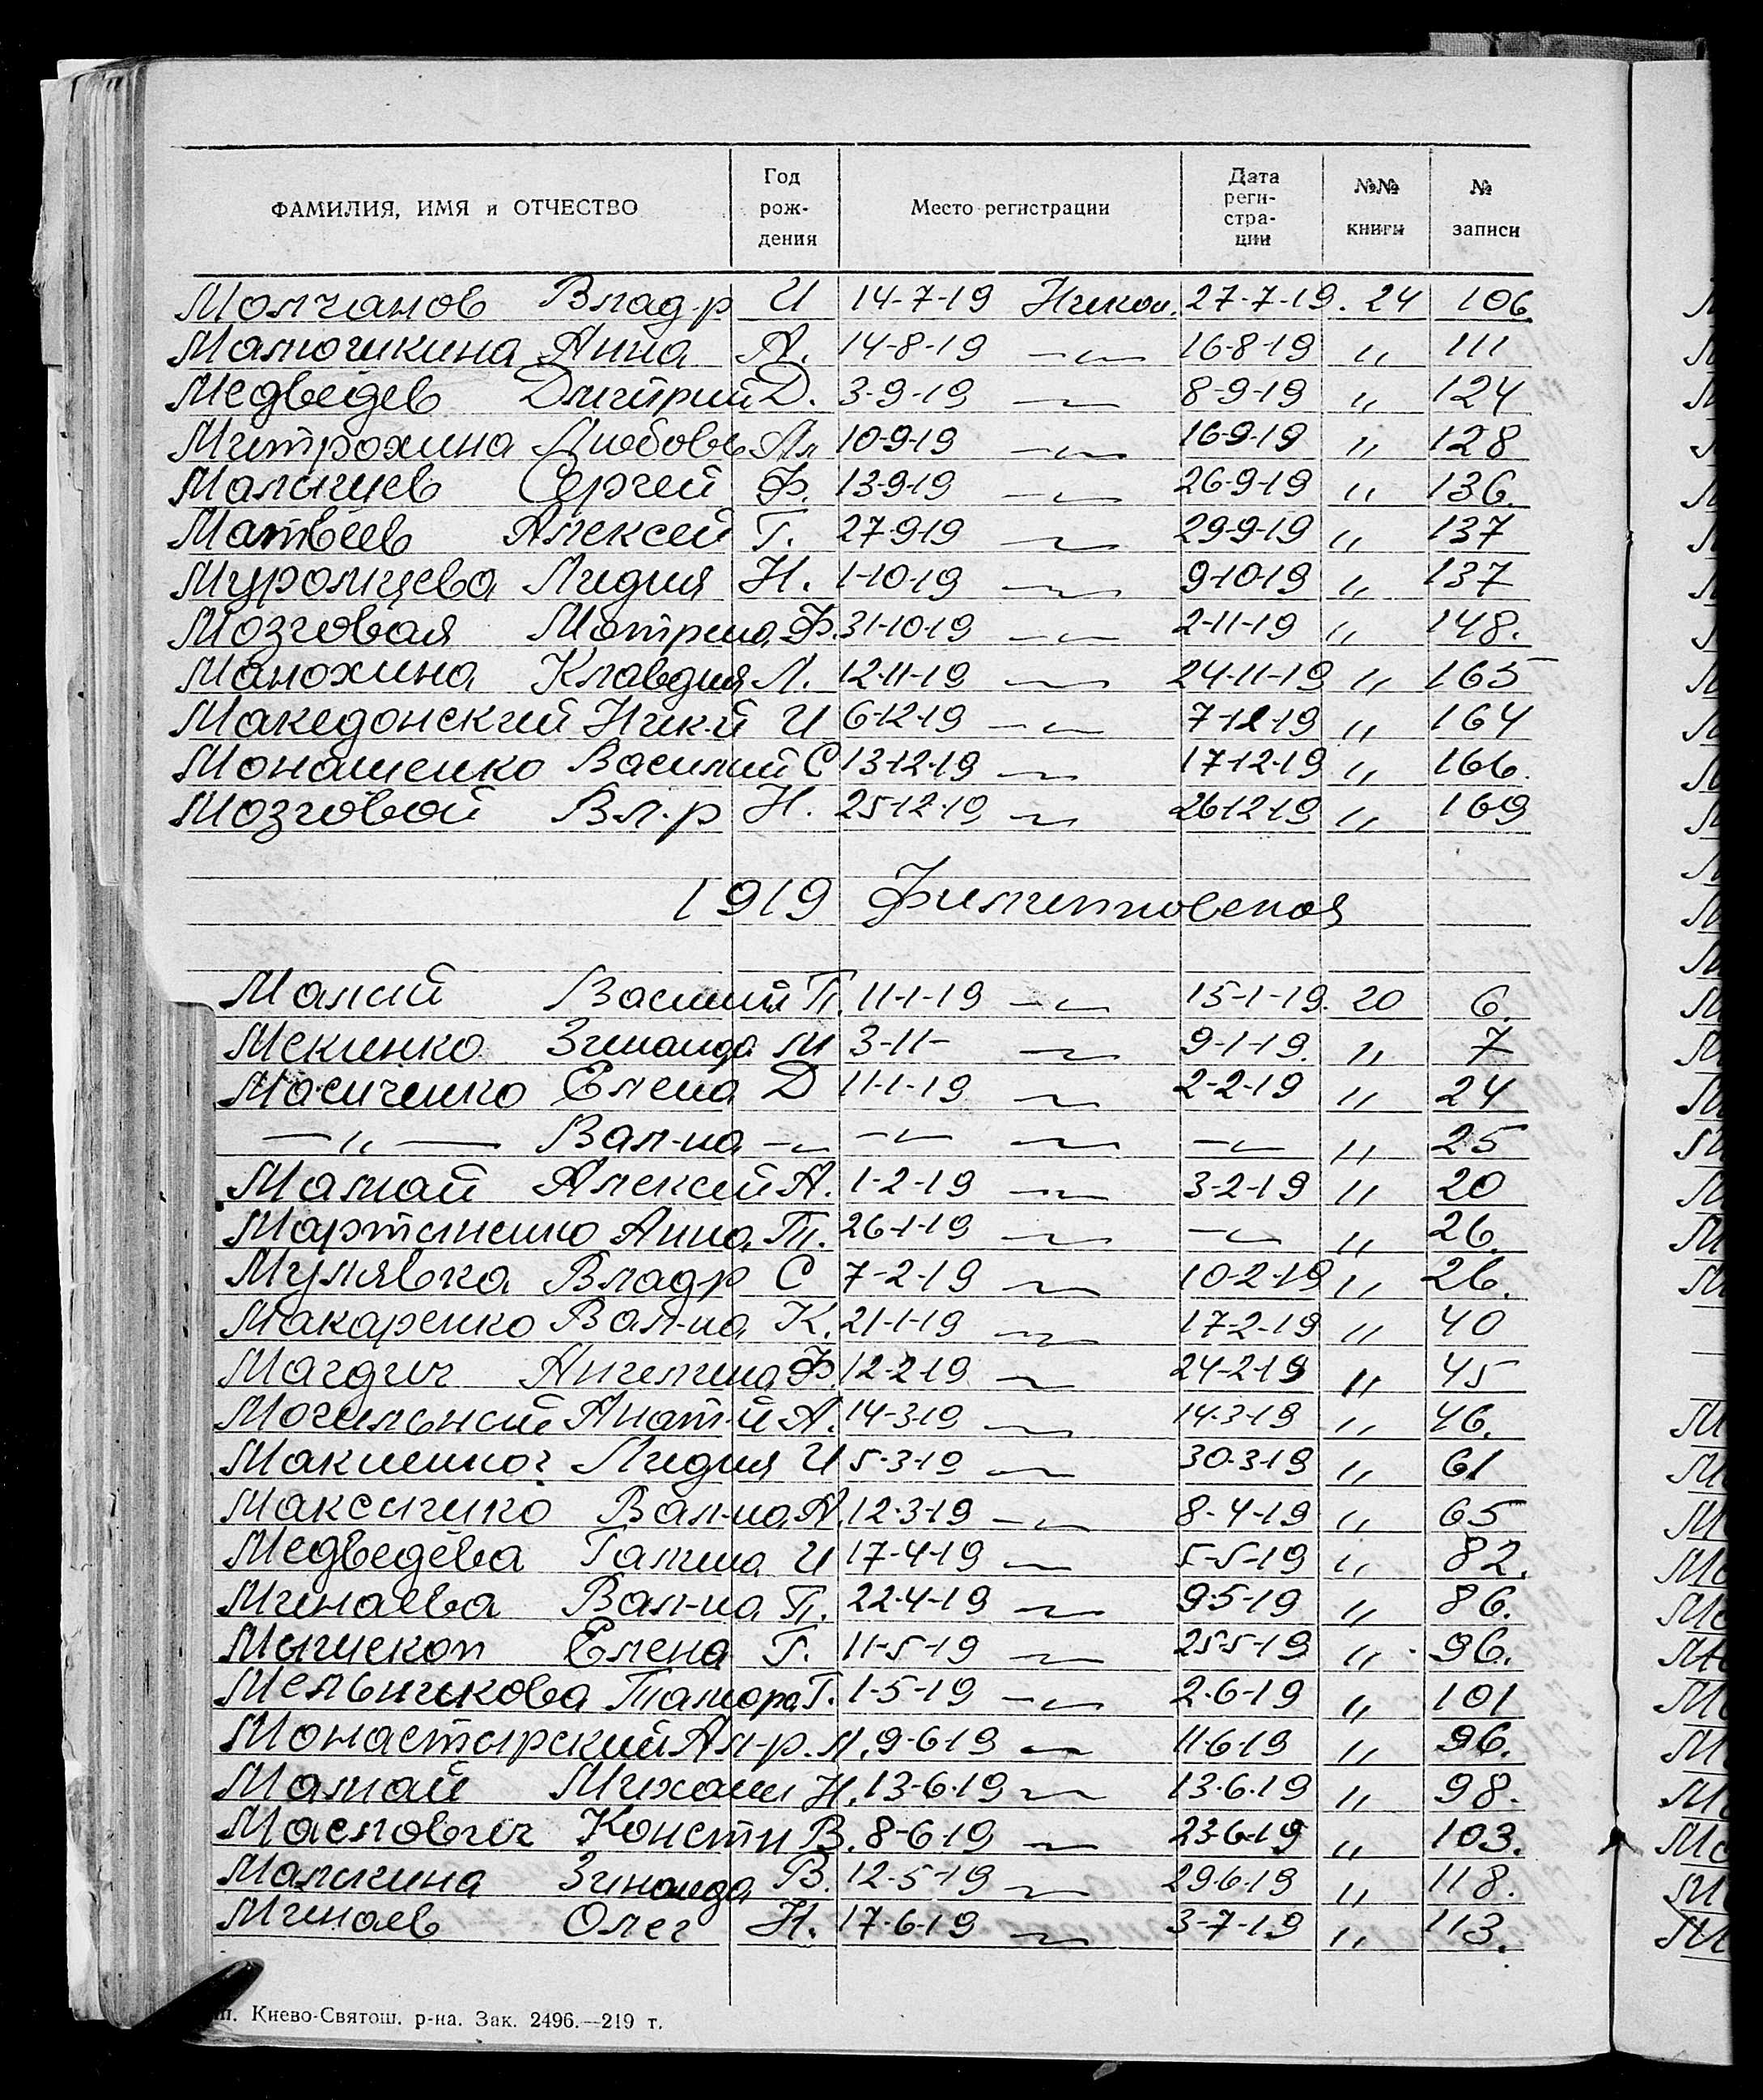 ФАМИЛИЯ, ИМЯ и ОТЧЕСТВО Год рождения Место регистрации Дата регистрации №№ книги № записи
Молчанов Влад-р И 14-7-19 Никол. 27-7-19. 24 106
Малюгикина Анна А. 14-8-19 —"— 16-8-19 " 111
Медведев Дмитрий Д. 3-9-19 —"— 8-9-19 " 124
Митрохина Любовь Ал 10-9-19 —"— 16-9-19 " 128
Мальцев Сергей Ф. 13-9-19 —"— 26-9-19 " 136.
Матвеев Алексей Г. 27-9-19 —"— 29-9-19 " 137
Муромцева Лидия Н. 1-10-19 —"— 9-10-19 " 137
Мозговая Мотрина Ф. 31-10-19 —"— 2-11-19 " 148.
Манохина Клавдия Л. 12-11-19 —"— 24-11-19 " 165
Македонский Ник-й И 6-12-19 —"— 7-12-19 " 164
Монашенко Василий С 13-12-19 —"— 17-12-19 " 166.
Мозговой Вл-р Н. 25-12-19 —"— 26-12-19 " 169
1919
Малий Василий П. 11-1-19 —"— 15-1-19. 20 6.
Мекинко Зинаида М 3-11- —"— 9-1-19. " 7
Елена Д 11-1-19 —"— 2-2-19 " 24
—"— Вал-на —"— —"— —"— —"— " 25
Мамай Алексей А. 1-2-19 —"— 3-2-19 " 20
Мартыненко Анна П. 26-1-19 —"— —"— " 26.
Мулявка Влад-р С 7-2-19 —"— 10-2-19 " 26.
Макаренко Вал-на К. 21-1-19 —"— 17-2-19 " 40
Магдич Ангелина Ф. 12-2-19 —"— 24-2-19 " 45
Могильный Анат-й А. 14-3-19 —"— 14-3-19 " 46.
Лидия И 5-3-19 —"— 30-3-19 " 61
Вал-на А. 12-3-19 —"— 8-4-19 " 65
Медведева Галина И 17-4-19 —"— 5-5-19 " 82.
Минаева Вал-на П. 22-4-19 —"— 9-5-19 " 86.
Елена Г. 11-5-19 —"— 25-5-19 " 96.
Мельникова Тамара Г. 1-5-19 —"— 2-6-19 " 101
Монастырский Ал-р. Л. 9-6-19 —"— 11-6-19 " 96.
Мамай Михаил Н. 13-6-19 —"— 13-6-19 " 98.
Маслович Констн В. 8-6-19 —"— 23-6-19 " 103.
Малкина Зинаида В. 12-5-19 —"— 29-6-19 " 118.
Минаев Олег Н. 17-6-19 —"— 3-7-19 " 113.
Киево-Святош. р-на. Зак. 2496.—219 т.